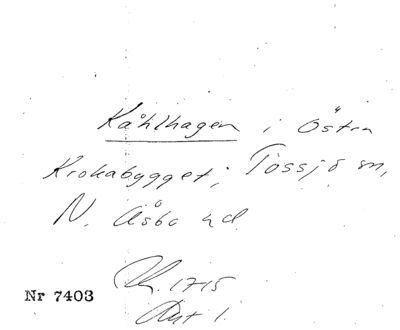 Kåhlhagen i Östra
Krokabygget; Tossjö sn,
N. Åsbo hd.
Uh. 1715
Avt 1.
Nr 7403